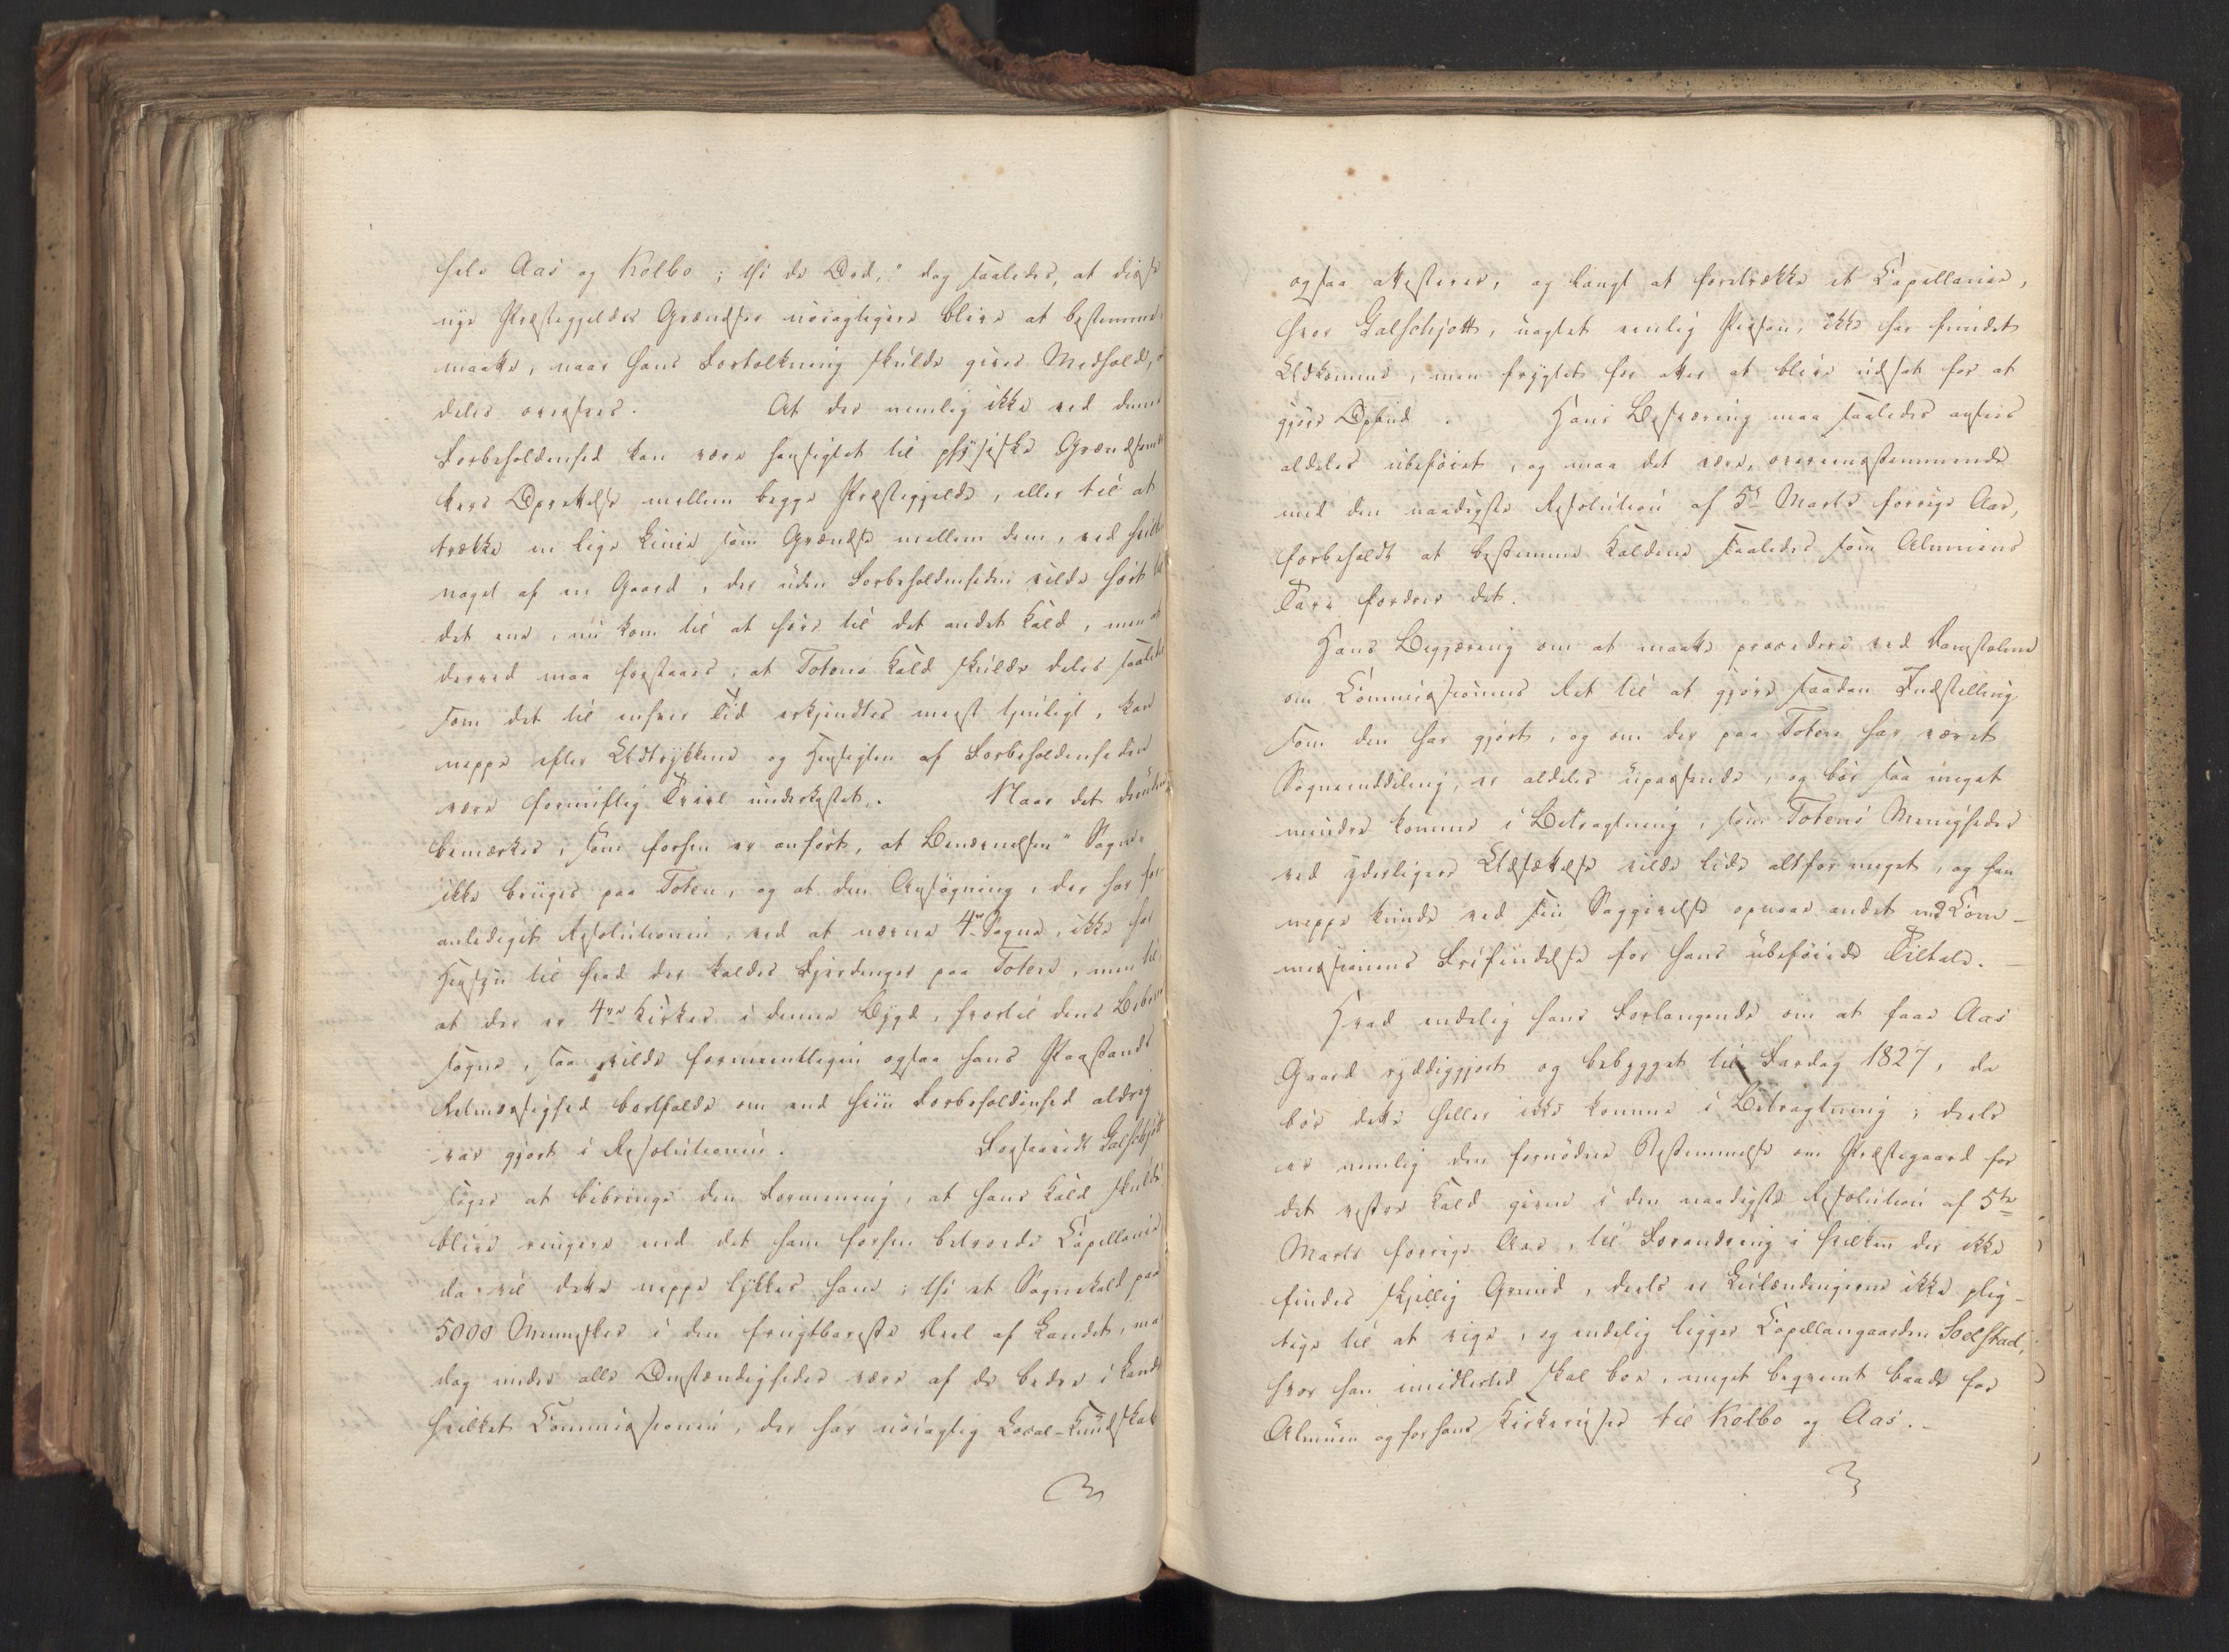 hele Aas og Kolbo; thi de Ord, "dog saaledes, at disse
nye Præstegjelds Grændser nöiagtigere blive at bestemme"
maatte, naar hans Fortolkning skulde gives Medhold,
deles overflødig. At der nemlig ikke ved denne
Forbeholdenhed kan være hensigtet til physiske Grændsemær-
kers Oprettelse mellem begge Præstegjelde, eller til at
trække en lige Linie som Grændse mellem dem, ved hvilke
noget af en Gaard, der uden Forbeholdenheden vilde hört til
det ene, nu kom til at höre til det andet Kald, men at
derved maa forstaaes, at Totens Kald skulde deles saaledes
som det til enhver Tid erkjendtes meest tjenligt, kan
neppe efter Udtrykkene og Hensigten af Forbeholdenheden
være fornuftig Tvivl underkastet. Naar det desuden
bemærkes, som forhen er anfört, at Benævnelsen "Sogne"
ikke bruges paa Toten, og at den Ansögning, der har for-
anlediget Resolutionen, ved at nævne 4re Sogne, ikke har
Hensyn til hvad der kaldes Fjerdinger paa Toten, men til,
at der er 4re Kirker i denne Bygd, hvortil dens Beboere
sogne, saa vilde formeentligen ogsaa hans Paastands
Retmæssighed bortfalde om end hiin Forbeholdenhed aldrig
var gjort i Resolutionen. Forsaavidt Galschjött
söger at bibringe den Formening, at hans Kald skulde
blive ringere end det ham forhen betroede Capellanie
da vil dette neppe lykkes ham; thi et Sognekald paa
5000 Mennesker i den frugtbareste Deel af Landet, maa
dog under alle Omstændigheder være af de bedre i Landet
hvilket Commissionen, der har nöiagtig Local-Kundskab
ogsaa attesterer, og langt at foretrække et Capellanie,
hvor Galschjött, uagtet enlig Person, ikke har fundet
Udkomme, men frygtet for atter at blive udsat for at
gjöre Opbud. Hans Besværing maa saaledes ansees
aldeles ubeföiet, og maa det være, overeensstemmende
med den naadigste Resolution af 5te Marts forrige Aar,
forbeholdt at bestemme Kaldene saaledes som Almeens
Tarv fordrer det.
Hans Begjæring om at maatte procedere ved Domstolene
om Commissionens Ret til at gjöre saadan Indstilling
som den har gjort, og om der paa Toten har været
Sogneinddeling, er aldeles upassende, og bör saa meget
mindre komme i Betragtning, som Totens Menigheder
ved yderligere Udsættelse vilde lide altfor meget, og han
neppe kunde ved sin Saggivelse opnaae andet end Com-
missionens Frifindelse for hans ubeföiede Tiltale.
Hvad endelig hans Forlangende om at faae Aas
Gaard ryddiggjort og bebygget til Fardag 1827, da
bör dette heller ikke komme i Betragtning; deels
er nemlig den fornödne Bestemmelse om Præstegaard for
det vestre Kald given i den naadigste Resolution af 5te
Marts forrige Aar, til Forandring i hvilken der ikke
findes skjellig Grund, deels er Leilændingerne ikke plig-
tige til at vige, og endelig ligger Capellangaarden Soelstad,
hvor han imidlertid skal boe, meget beqvemt baade for
Almuen og for hans Kirkereiser til Kolbo og Aas.